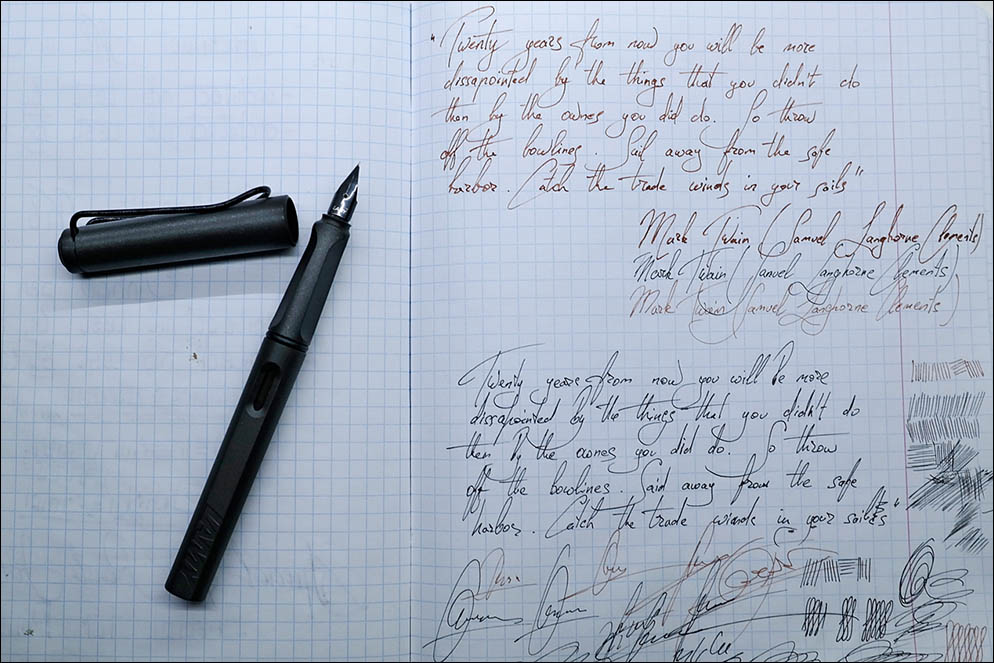 "Twenty years from now you will be more
dissapointed by the things that you didn't do
then by the ownes you did do. So throw
off the bowlines. Sail away from the safe
harbor. Catch the trade winds in your sails"
Mark Twain (Samuel Langhorne Clements)
Mark Twain (Samuel Langhorne Clements)
Mark Twain (Samuel Langhorne Clements)
Twenty years from now you will be more
dissapointed by the things that you didn't do
then by the ownes you did do. So throw
off the bowlines. Said away from the safe
harbor. Catch the trade winds in your sails"
LAMY